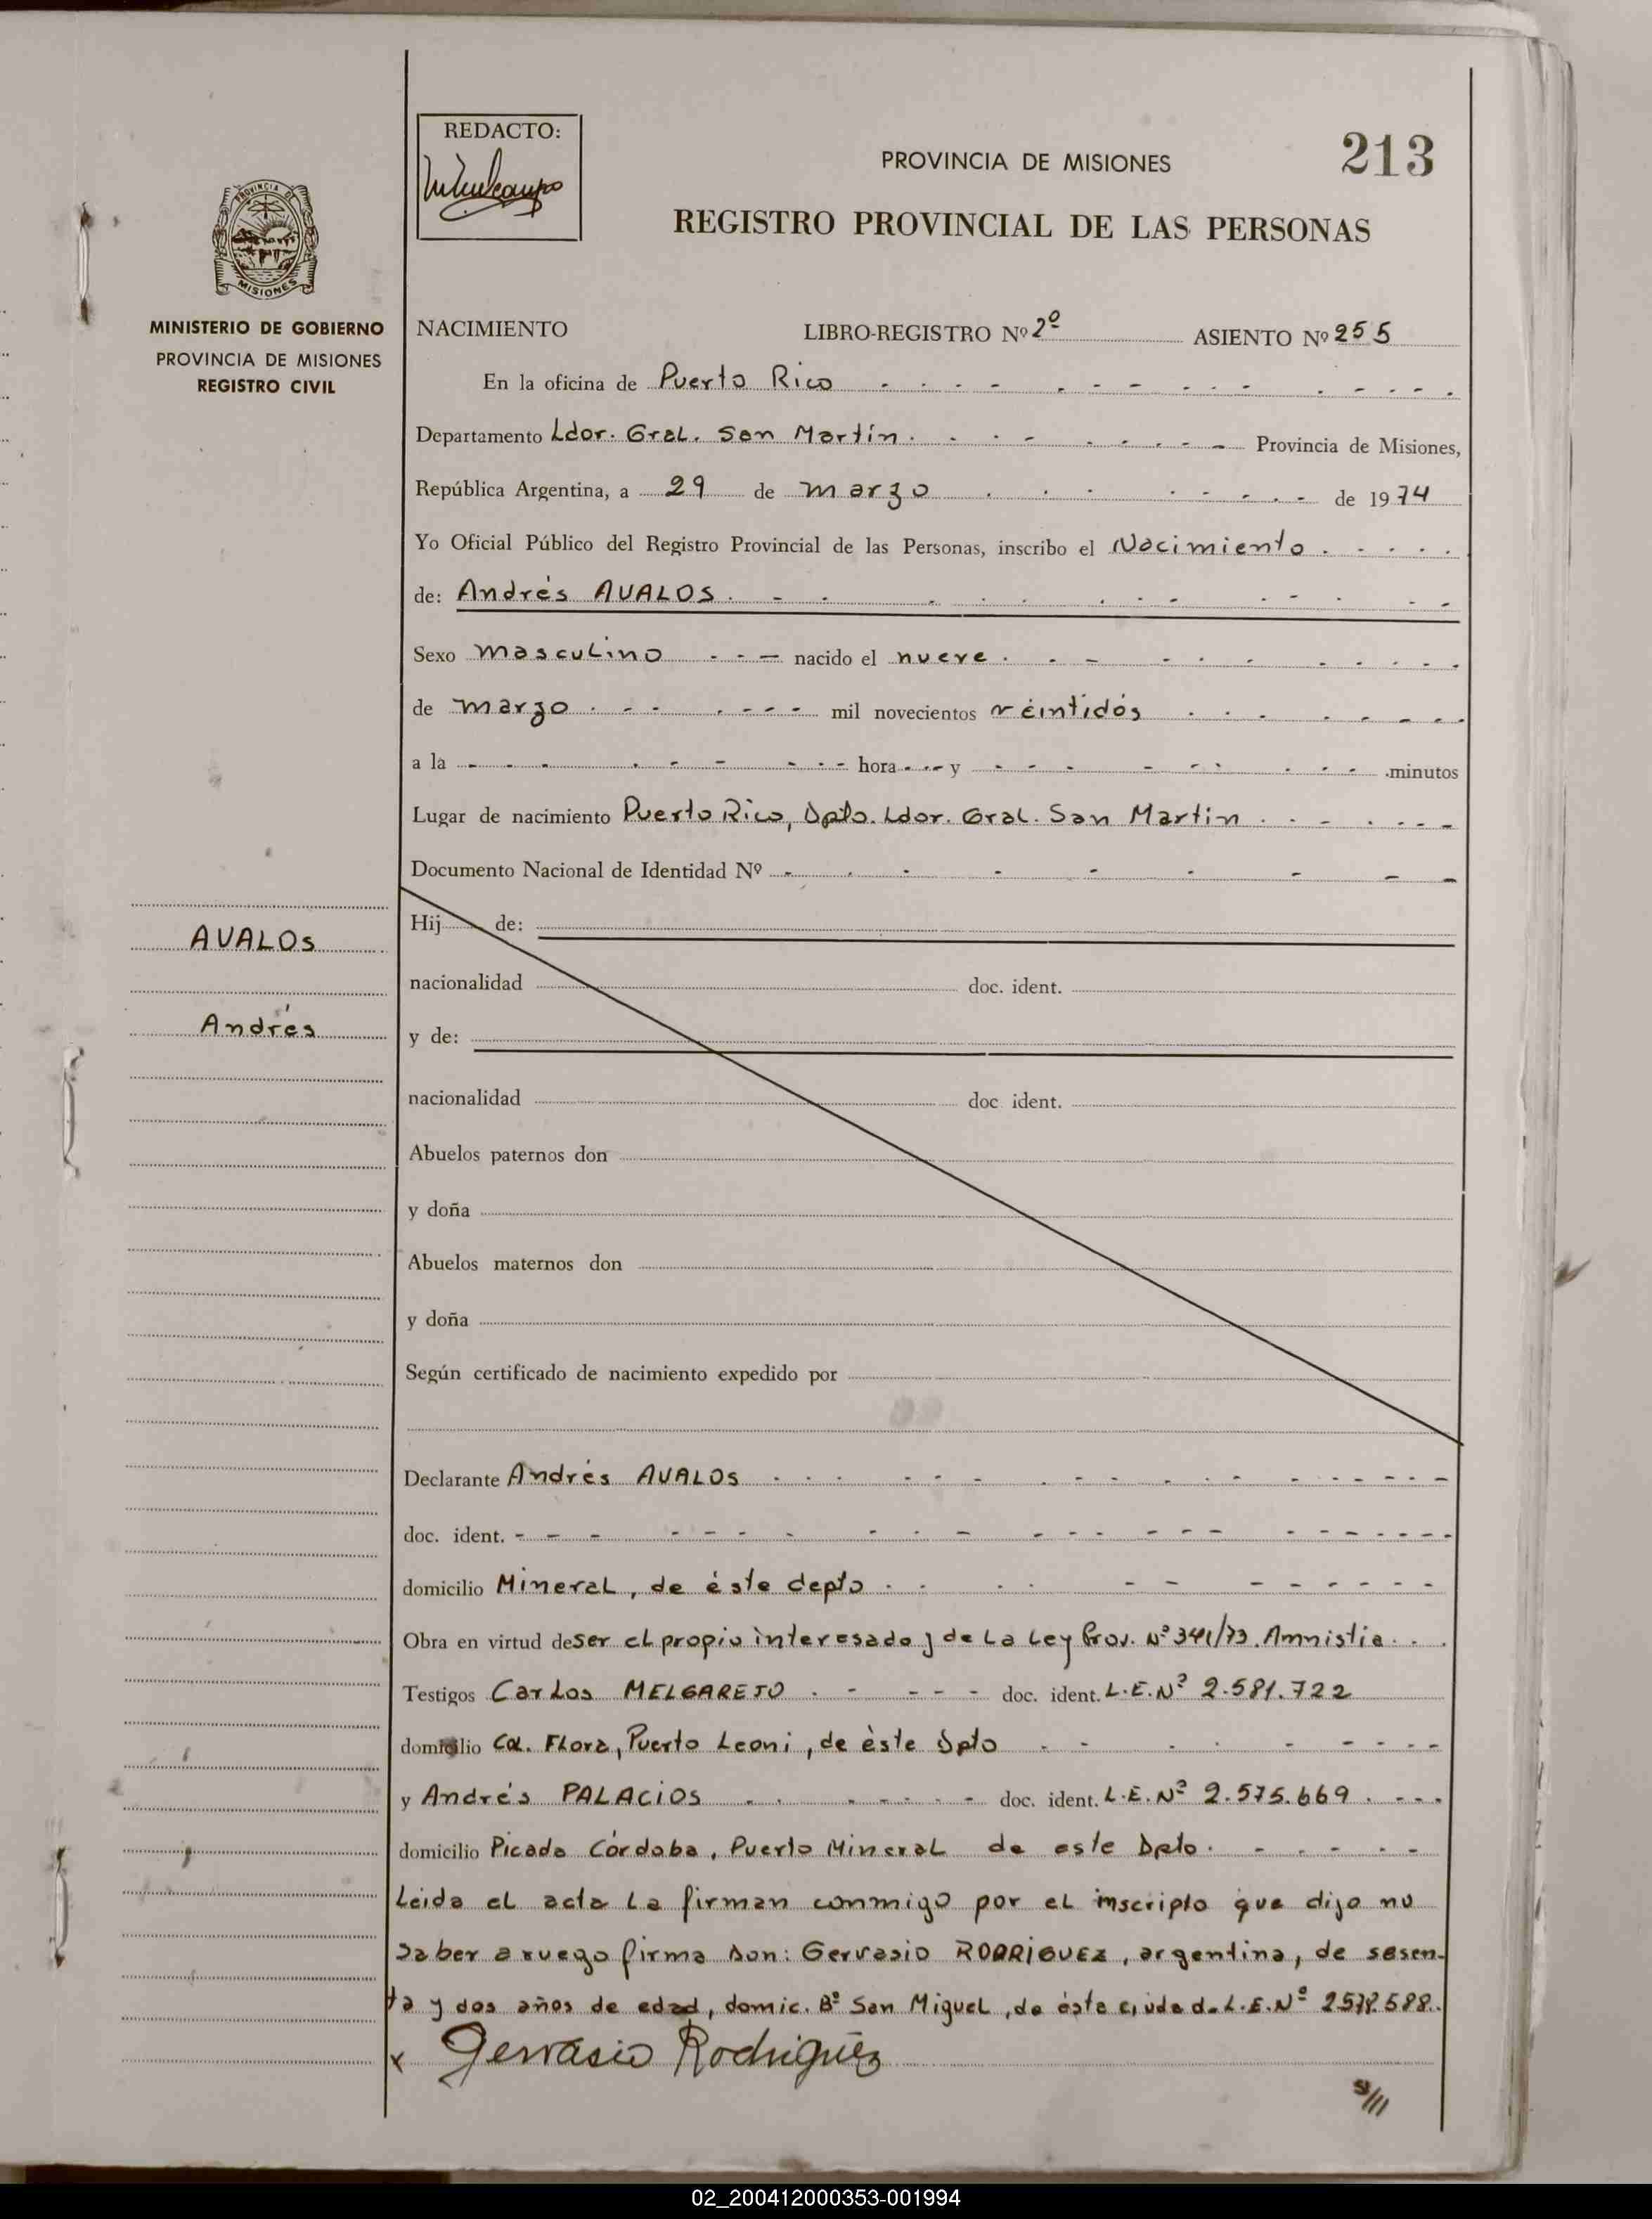 REDACTO:
PROVINCIA DE MISIONES
213
REGISTRO PROVINCIAL DE LAS PERSONAS
PROVINCIA DE
MISIONES
MINISTERIO DE GOBIERNO
PROVINCIA DE MISIONES
REGISTRO CIVIL
NACIMIENTO LIBRO-REGISTRO Nº 2º ASIENTO Nº 255
En la oficina de Puerto Rico
Departamento Ldor. Gral. San Martín. Provincia de Misiones,
República Argentina, a 29 de marzo de 1974
Yo Oficial Público del Registro Provincial de las Personas, inscribo el Nacimiento
de: Andrés AVALOS
Sexo masculino nacido el nueve
de marzo mil novecientos véintidós
a la hora y minutos
Lugar de nacimiento Puerto Rico, Dpto. Ldor. Gral. San Martin
Documento Nacional de Identidad Nº
AVALOS
Andrés
Hij de:
nacionalidad doc. ident.
y de:
nacionalidad doc. ident.
Abuelos paternos don
y doña
Abuelos maternos don
y doña
Según certificado de nacimiento expedido por
Declarante Andrés AVALOS
doc. ident.
domicilio Mineral, de éste depto
Obra en virtud de ser el propio interesado y de La Ley Prov. Nº 341/73. Amnistia.
Testigos Carlos MELGAREJO doc. ident. L.E.Nº 2.581.722
domicilio Col. Flora, Puerto Leoni, de èste Dpto
y Andrés PALACIOS doc. ident. L.E.Nº 2.575.669
domicilio Picada Córdoba, Puerto Mineral de este Dpto.
Leida el acta la firman conmigo por el inscripto que dijo no
saber a ruego firma Don: Gervasio RODRIGUEZ, argentina, de sesen-
ta y dos años de edad, domic. Bº San Miguel, de ésta ciudad. L.E.Nº 2.578.588.
x Gervasio Rodriguez
02_200412000353-001994